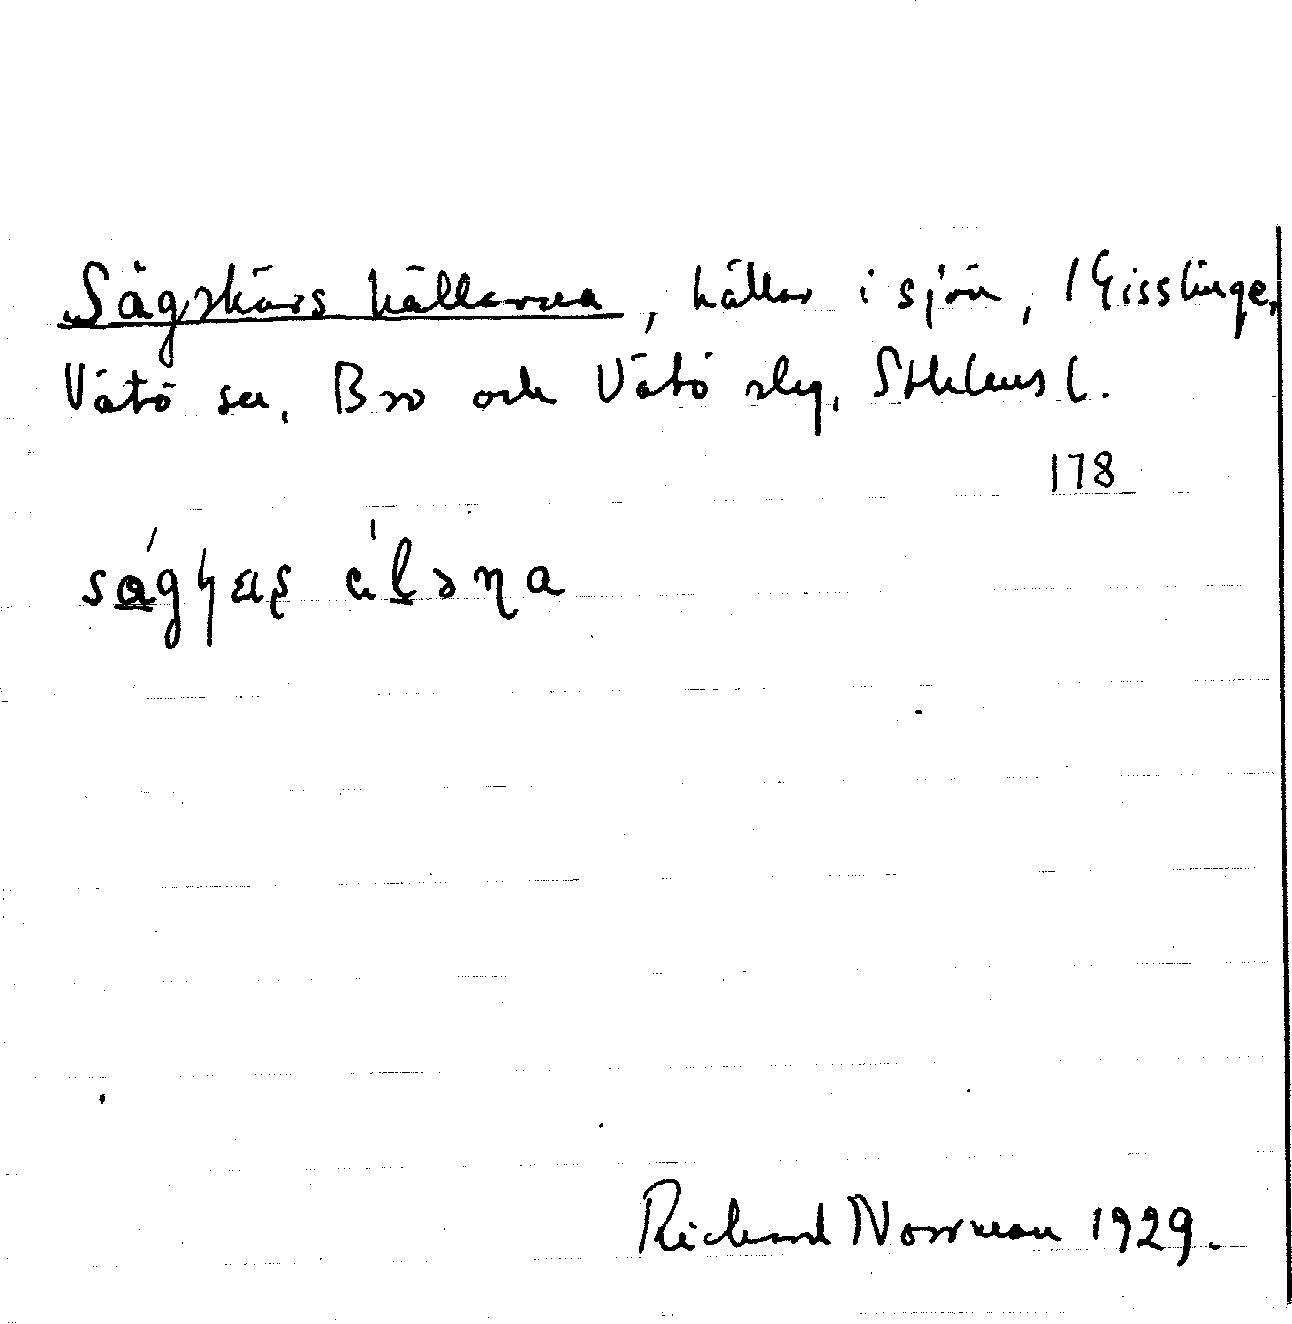 Sågskärs hällarna, hällar i sjön, / Gisslinge,
Vätö sn, Bro och Vätö slg, Sthlms l.
178
Richard Norrman 1929.